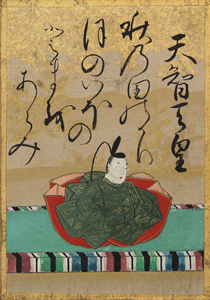 天智天皇
秋乃田のかり
ほのいほの
とまを
あらみ